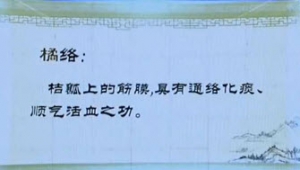 橘络:
桔瓤上的筋膜,具有通络化痰、
顺气活血之功。